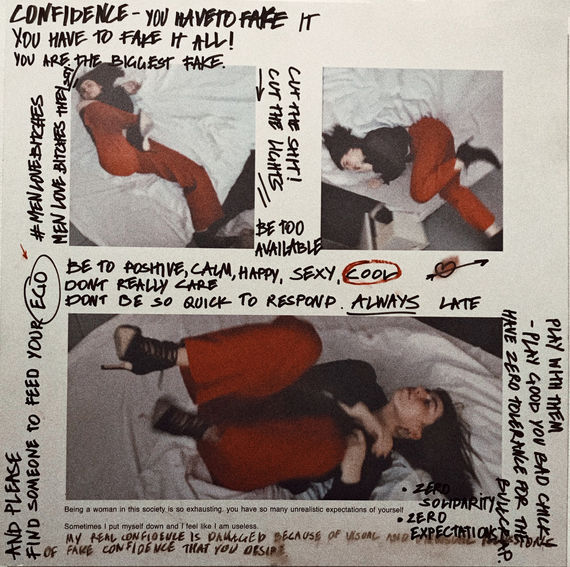 CONFIDENCE - YOU HAVE TO FAKE IT
YOU HAVE TO FAKE IT ALL!
YOU ARE THE BIGGEST FAKE.
#MENLOVEBITCHES
MEN LOVE BITCHES THEY SAY
CUT THE SHIT!
CUT THE LIGHTS
BE TOO
AVAILABLE
BE TO POSITIVE, CALM, HAPPY, SEXY, COOL
DONT REALLY CARE
DONT BE SO QUICK TO RESPOND. ALWAYS LATE
AND PLEASE
FIND SOMEONE TO FEED YOUR EGO
PLAY WITH THEM
- PLAY GOOD YOU BAD CHICK
HAVE ZERO TOLERANCE FOR THE BULLCRAP.
• ZERO
SOLIDARITY
• ZERO
EXPECTATIONS
Being a woman in this society is so exhausting. you have so many unrealistic expectations of yourself
Sometimes I put myself down and I feel like I am useless.
MY REAL CONFIDENCE IS DAMAGED BECAUSE OF VISUAL AND
OF FAKE CONFIDENCE THAT YOU DESIRE